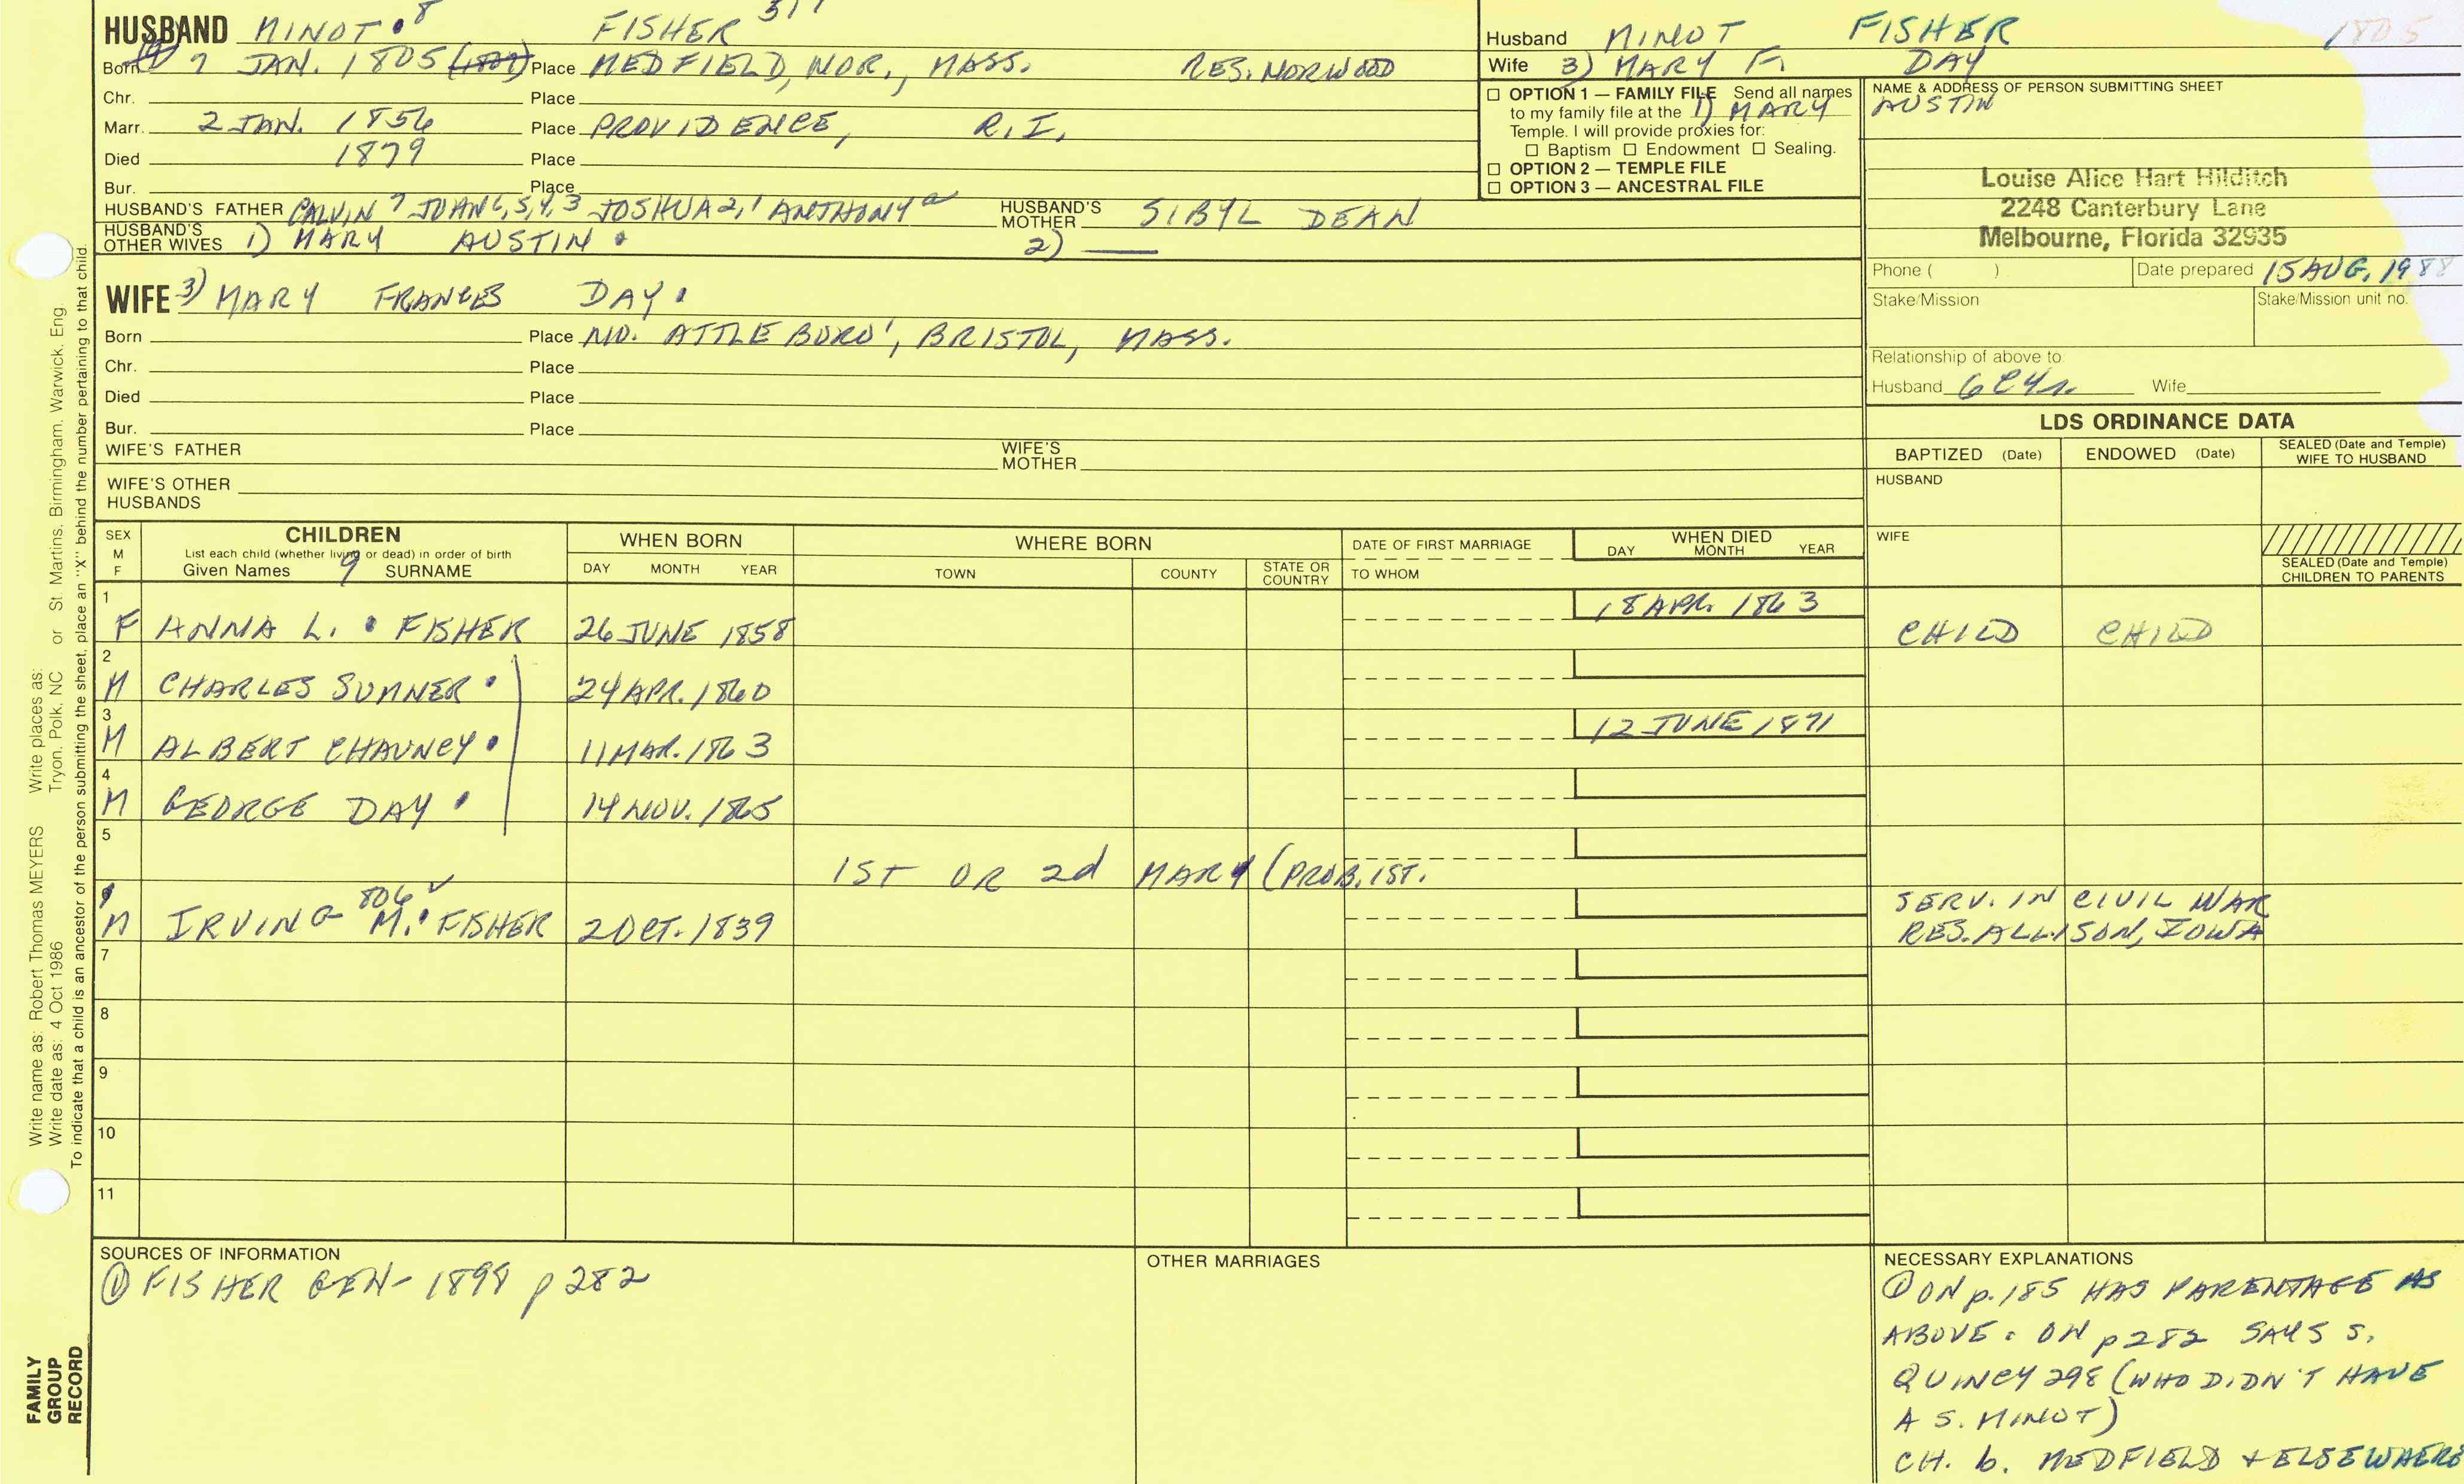 HUSBAND MINOT 8 FISHER 311
Born 7 JAN. 1805 Place MEDFIELD, NOR., MASS. RES. NORWOOD
Chr. Place
Marr. 2 JAN. 1856 Place PROVIDENCE, R.I.
Died 1879 Place
Bur. Place
HUSBAND'S FATHER CALVIN 7 6, 5, 4, 3 JOSHUA 2, 1 ANTHONY a HUSBAND'S MOTHER SIBYL DEAN
HUSBAND'S OTHER WIVES 1) MARY AUSTIN 2) —
WIFE 3) MARY FRANCES DAY
Born Place NO. ATTLEBORO', BRISTOL, MASS.
Chr. Place
Died Place
Bur. Place
WIFE'S FATHER WIFE'S MOTHER
WIFE'S OTHER HUSBANDS
Husband MINOT FISHER 1805
Wife 3) MARY F. DAY
1) MARY AUSTIN
☐ OPTION 1 — FAMILY FILE Send all names
to my family file at the
Temple. I will provide proxies for:
☐ Baptism ☐ Endowment ☐ Sealing.
☐ OPTION 2 — TEMPLE FILE
☐ OPTION 3 — ANCESTRAL FILE
NAME & ADDRESS OF PERSON SUBMITTING SHEET
Louise Alice Hart Hilditch
2248 Canterbury Lane
Melbourne, Florida 32935
Phone ( ) Date prepared 15 AUG. 1988
Stake/Mission Stake/Mission unit no.
Relationship of above to
Husband 6C4R. Wife
LDS ORDINANCE DATA
BAPTIZED (Date) ENDOWED (Date) SEALED (Date and Temple) WIFE TO HUSBAND
HUSBAND
WIFE
SEALED (Date and Temple) CHILDREN TO PARENTS
SEX M F
CHILDREN
List each child (whether living or dead) in order of birth
Given Names 9 SURNAME
WHEN BORN
DAY MONTH YEAR
WHERE BORN
TOWN COUNTY STATE OR COUNTRY
DATE OF FIRST MARRIAGE
TO WHOM
WHEN DIED
DAY MONTH YEAR
1 F ANNA L. FISHER 26 JUNE 1858 18 APR. 1863 CHILD CHILD
2 M CHARLES SUMNER 24 APR. 1860
3 M ALBERT CHAUNCY 11 MAR. 1863 12 JUNE 1871
4 M GEORGE DAY 14 NOV. 1865
5 1ST OR 2d MARY (PROB. 1ST.
M IRVING M. FISHER 806 ✓ 2 OCT. 1839 SERV. IN CIVIL WAR
RES. ALLISON, IOWA
7
8
9
10
11
SOURCES OF INFORMATION
① FISHER GEN- 1898 p 282
OTHER MARRIAGES
NECESSARY EXPLANATIONS
① ON p. 185 HAS PARENTAGE AS
ABOVE. ON p 282 SAYS S.
QUINCY 298 (WHO DIDN'T HAVE
A S. MINOT)
CH. b. MEDFIELD + ELSEWHERE
Write name as: Robert Thomas MEYERS Write places as:
Write date as: 4 Oct 1986 Tryon, Polk, NC or St Martins, Birmingham, Warwick, Eng
To indicate that a child is an ancestor of the person submitting the sheet, place an "X" behind the number pertaining to that child.
FAMILY
GROUP
RECORD